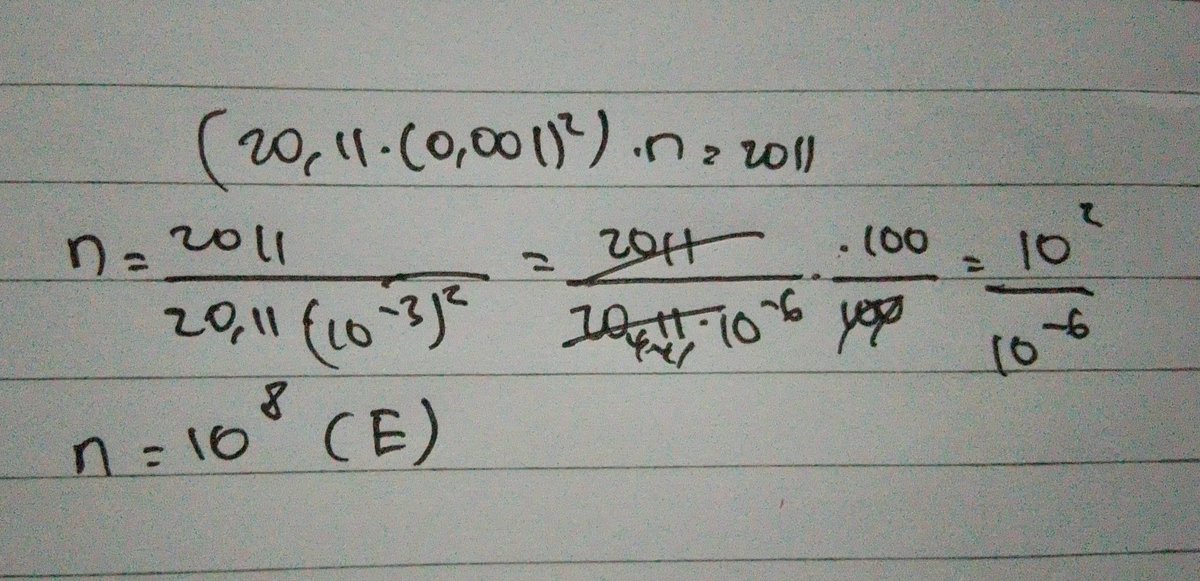 (20,11.(0,001)²).n = 2011
n = 2011 / 20,11 (10⁻³)² = 2011 / 20,11.10⁻⁶ . .100 / 100 = 10² / 10⁻⁶
n = 10⁸ (E)